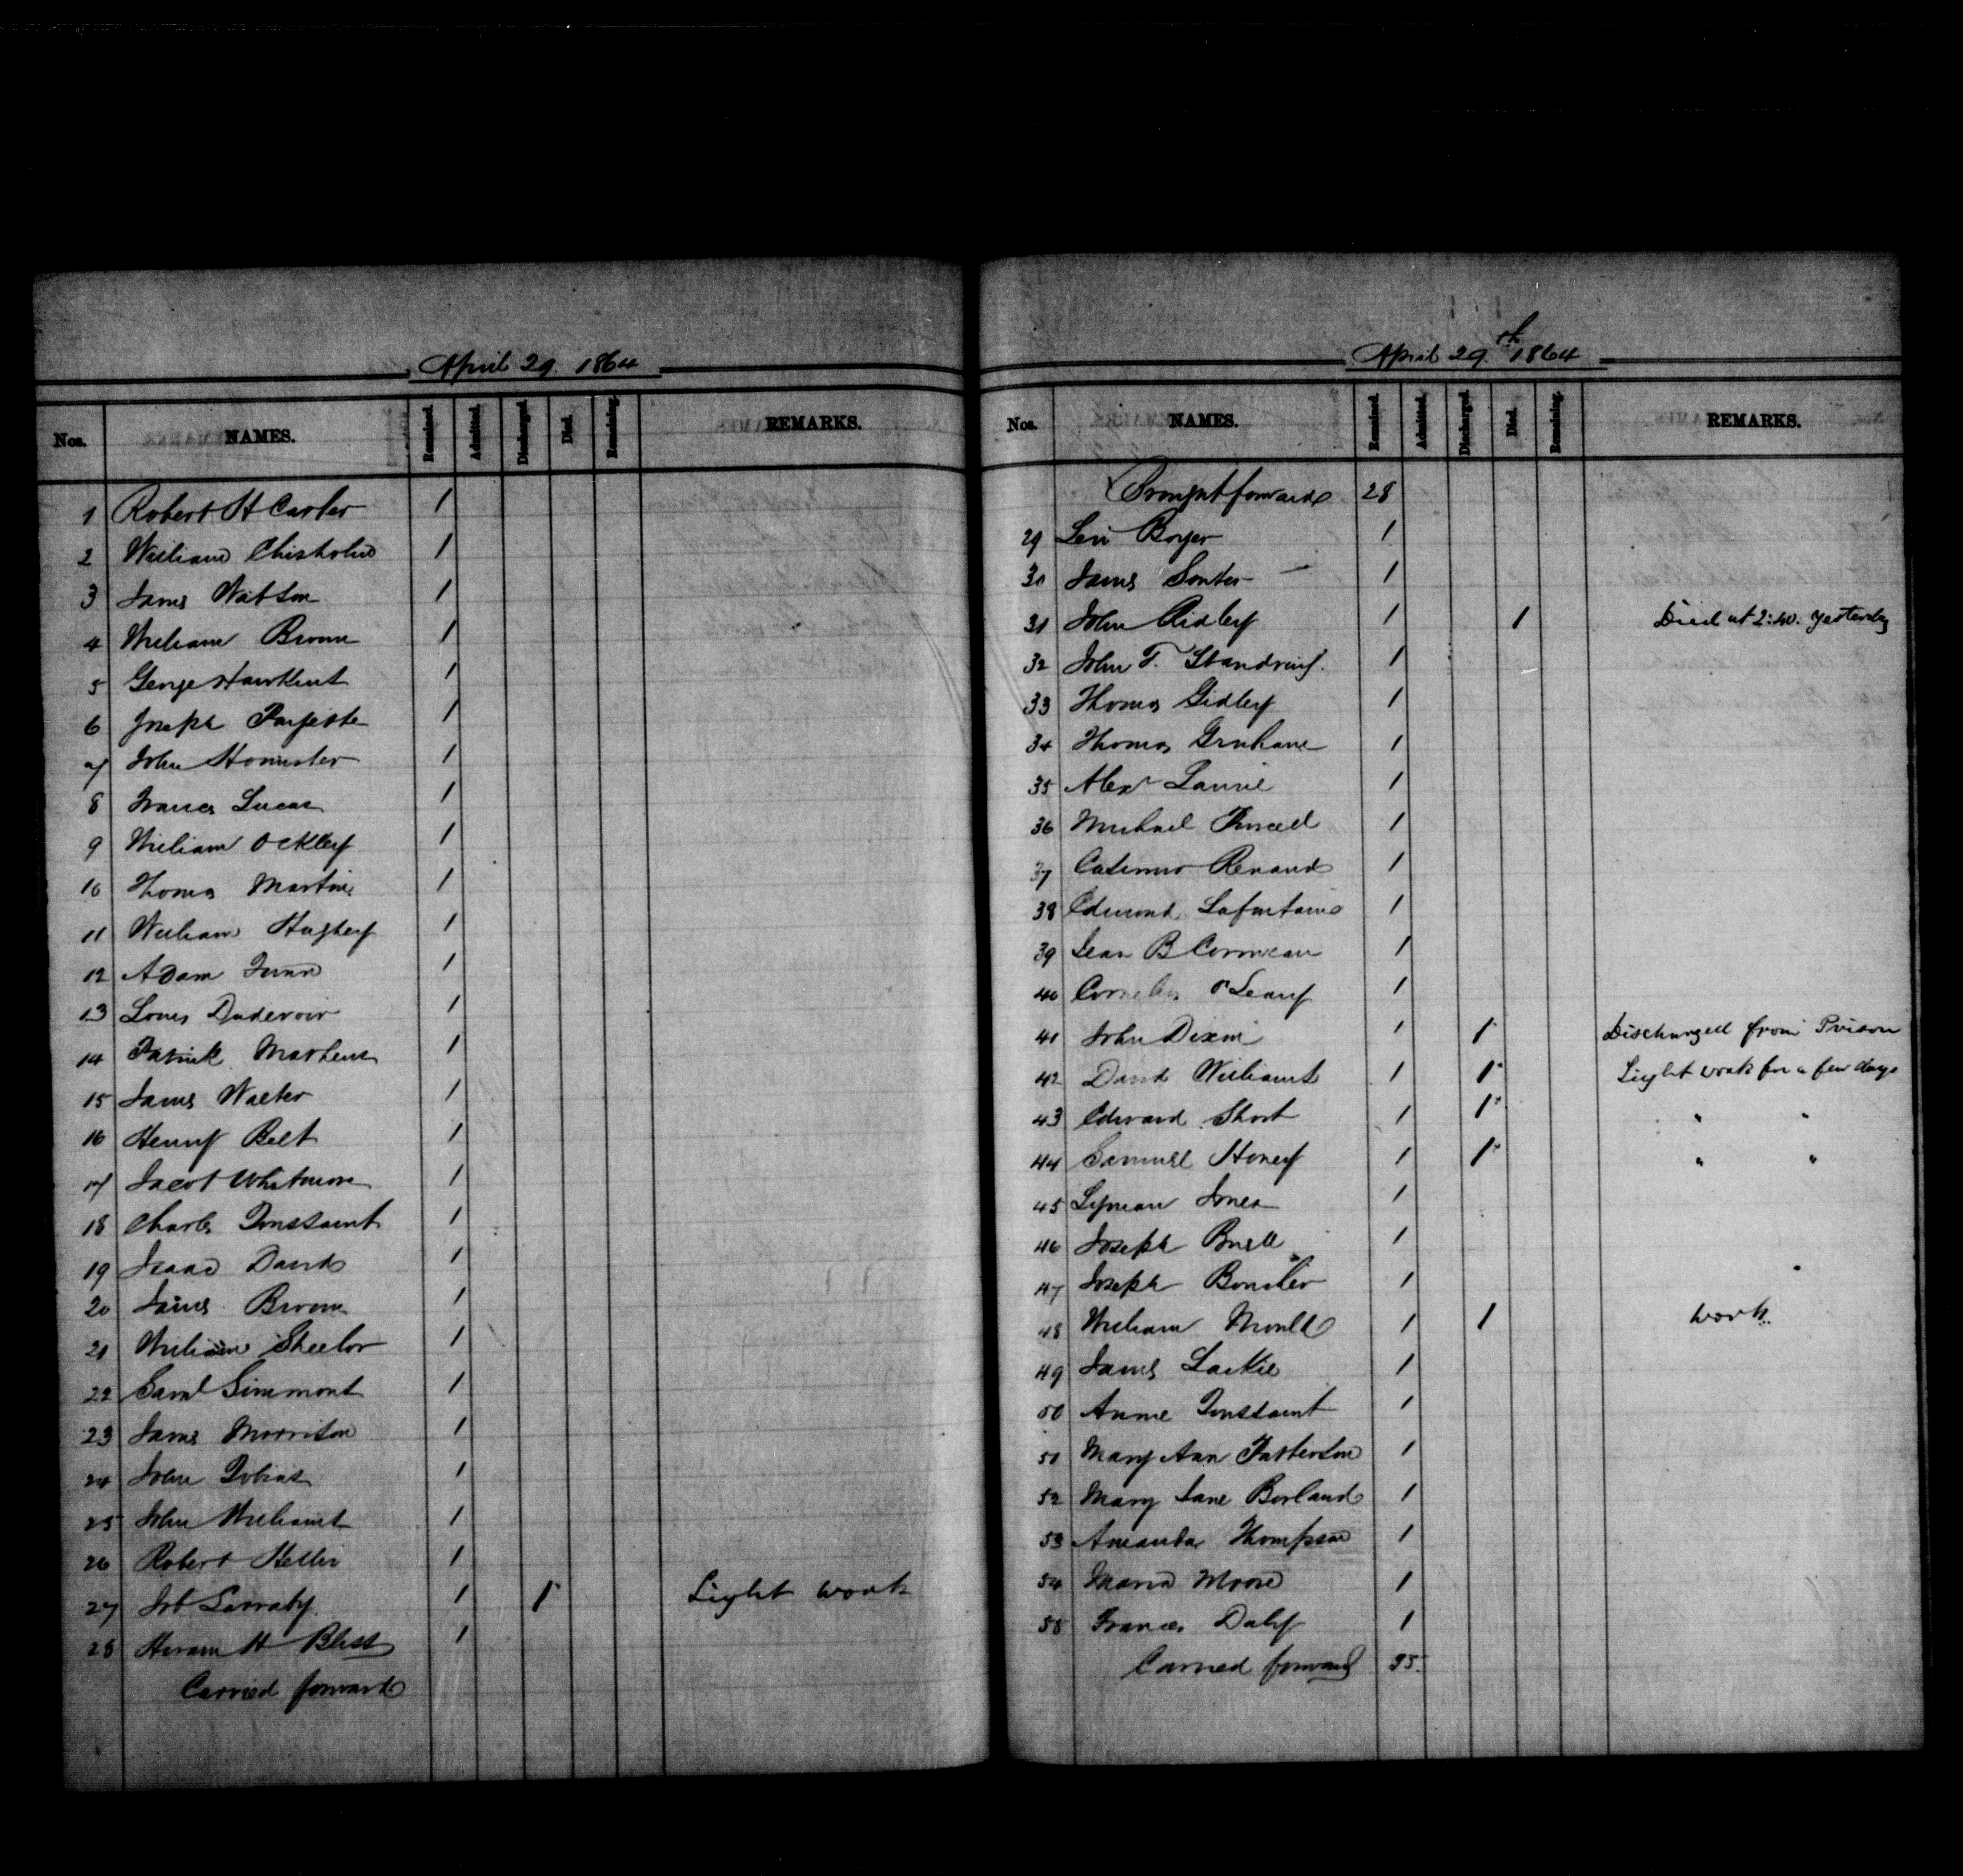 April 29. 1864
Nos. NAMES. Remained. Admitted. Discharged. Died. Remaining. REMARKS.
1 Robert H Carter 1
2 William Chisholm 1
3 James Watson 1
4 William Brown 1
5 George Hawkins 1
6 Joseph 1
7 John 1
8 Francis Lucas 1
9 William Ockley 1
10 Thomas Martin 1
11 William Hughey 1
12 Adam 1
13 Louis Dudevoir 1
14 Patrick Mathews 1
15 James Walter 1
16 Henry Belt 1
17 Jacob Whitmore 1
18 Charles Toussaint 1
19 Isaac David 1
20 James Brown 1
21 William Sheeler 1
22 Saml Simmons 1
23 James Morrison 1
24 John Tobias 1
25 John Williams 1
26 Robert 1
27 Job Larraby 1 1 Light work
28 Hiram H Bliss 1
Carried forward
April 29th 1864
Nos. NAMES. Remained. Admitted. Discharged. Died. Remaining. REMARKS.
Brought forward 28
29 Levi Boyer 1
30 James Souter 1
31 John Ridley 1 1 Died at 2:40. yesterday
32 John T. Standring. 1
33 Thomas Gidley 1
34 Thomas Graham 1
35 Alexr Laurie 1
36 Michael Purcell 1
37 Casimir Renaud 1
38 Edmond Lafontaine 1
39 Jean B Cormeau 1
40 Cornelius O'Leary 1
41 John Dixon 1 1 Discharged from Prison
42 David Williams 1 1 Light work for a few days
43 Edward Short 1 1 " "
44 Samuel Honey 1 1 " "
45 Lyman Jones 1
46 Joseph Buell 1
47 Joseph Boucher 1
48 William Mould 1 1 work
49 James Lackie 1
50 Anne Toussaint 1
51 Mary Ann Patterson 1
52 Mary Jane Borland 1
53 Amanda Thompson 1
54 Maria Moore 1
55 Frances Daly 1
Carried forward 55